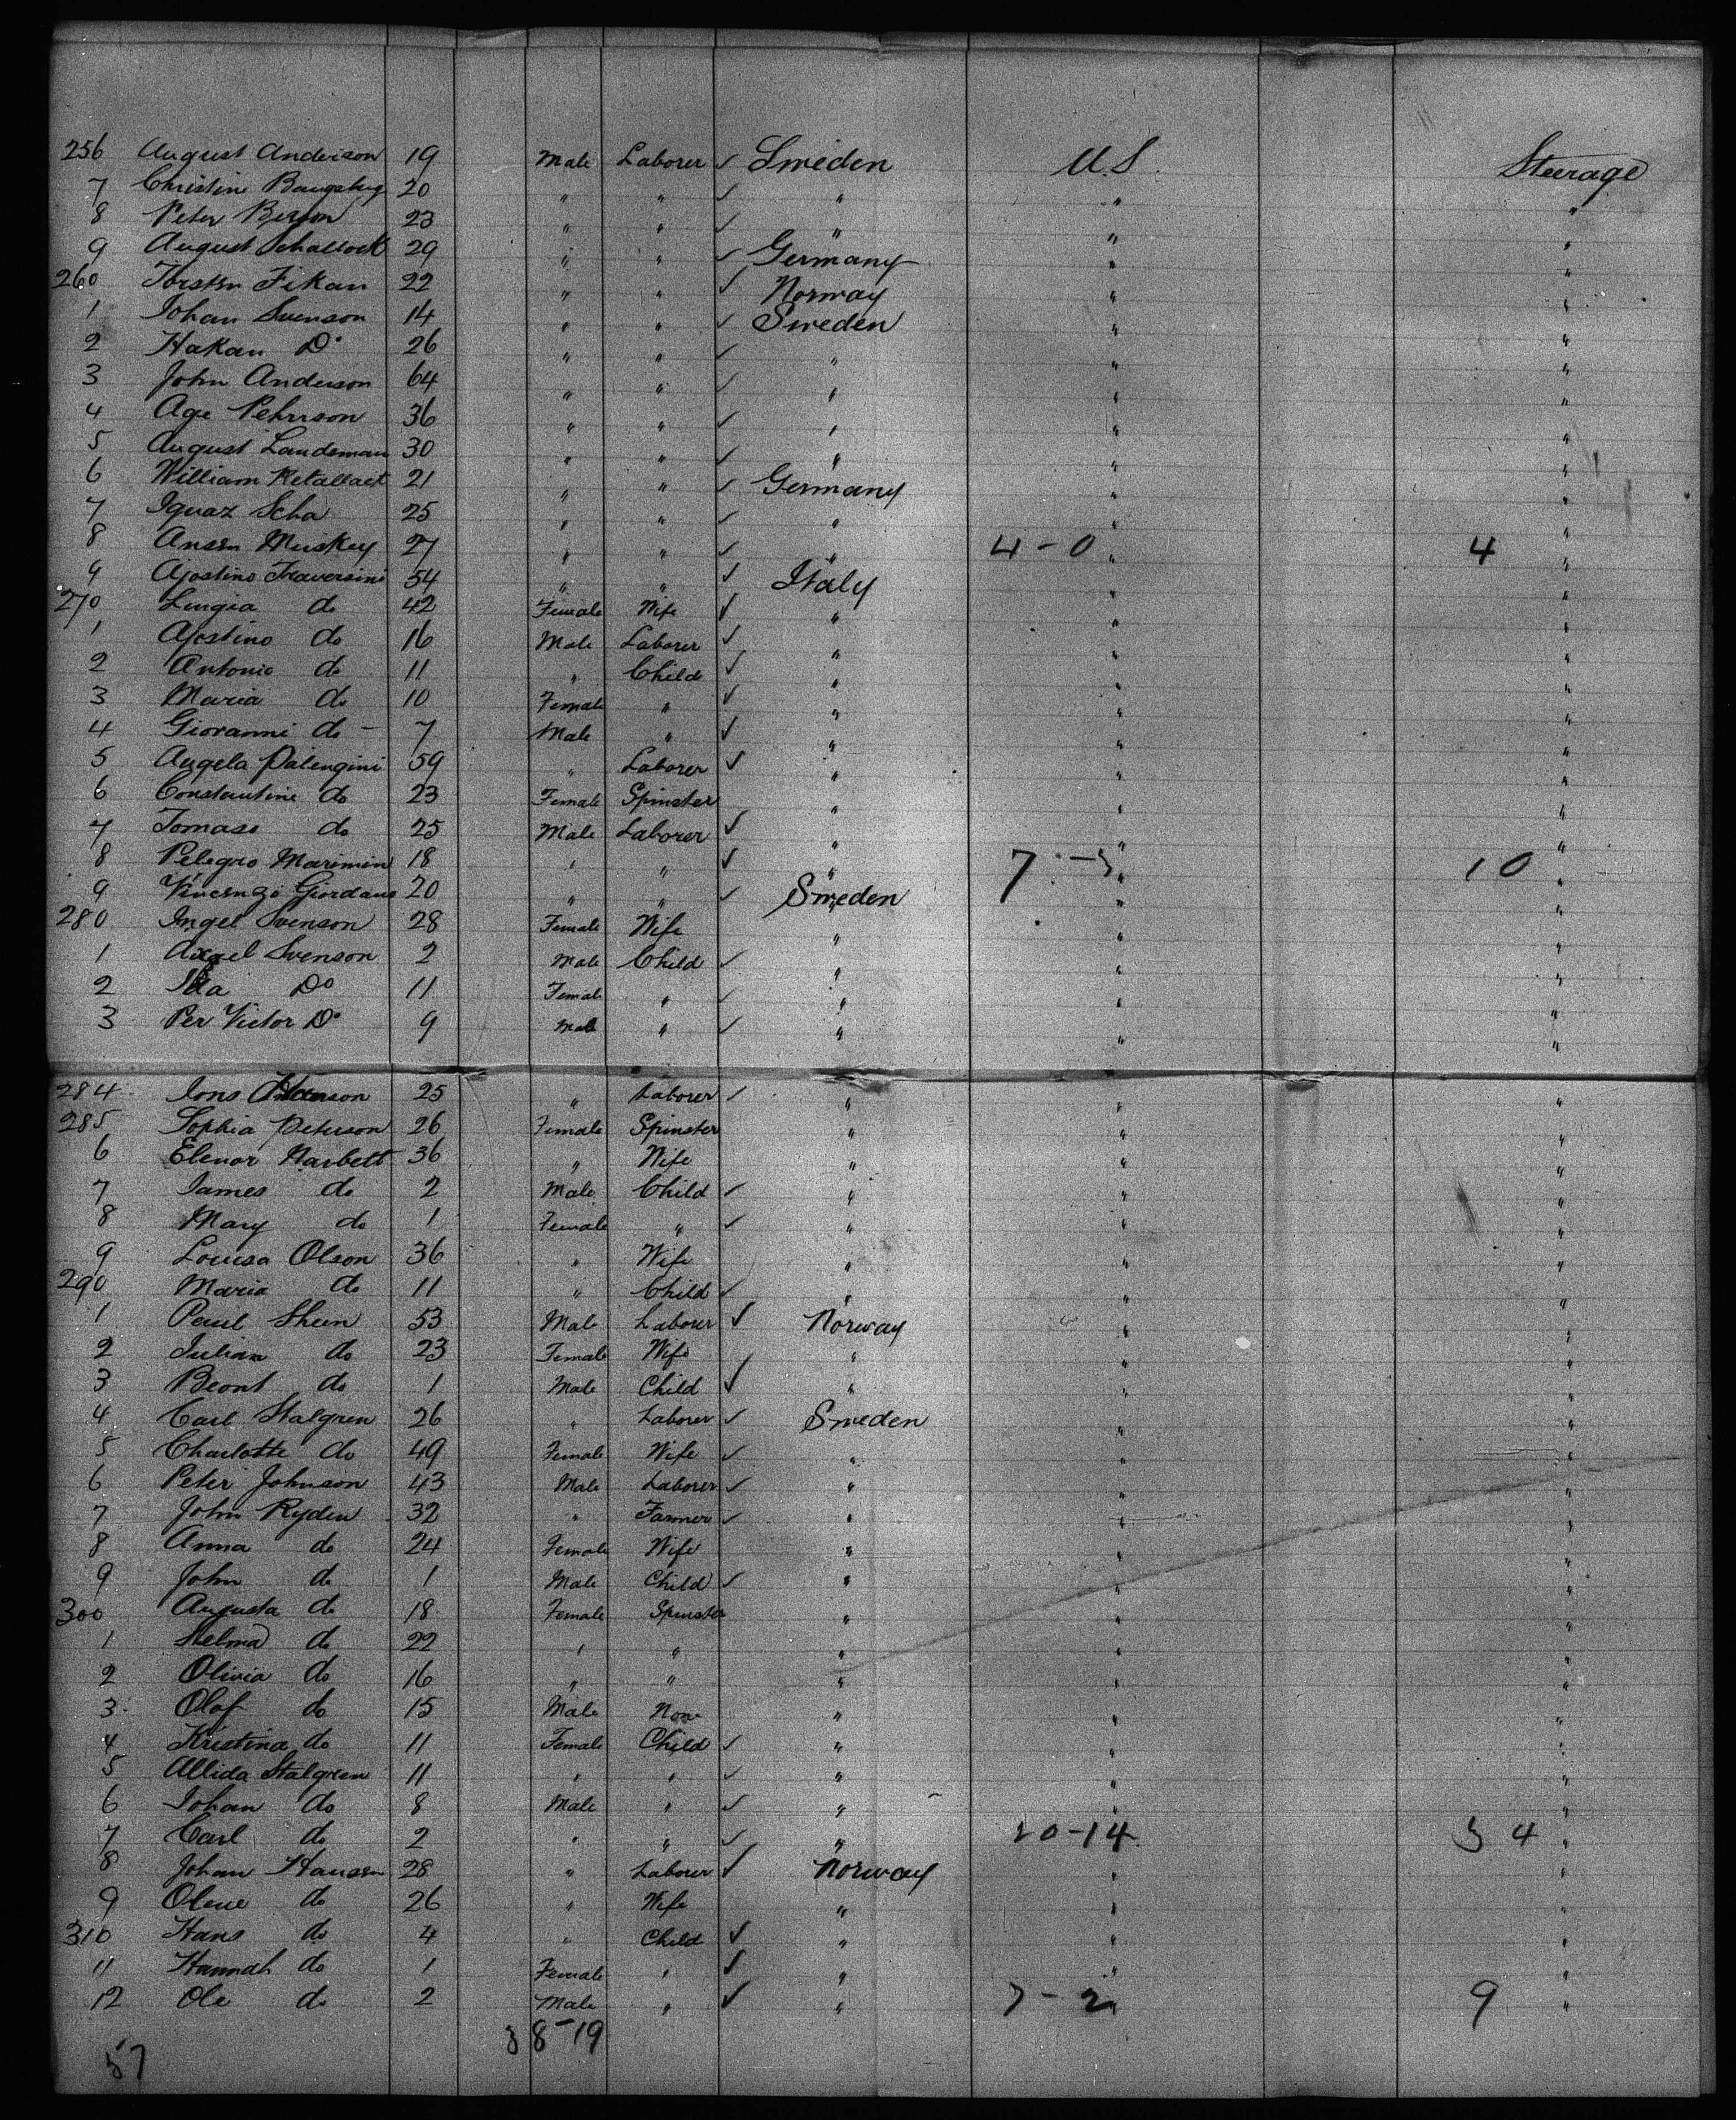 256 August Anderson 19 Male Laborer ✓ Sweden U.S. Steerage
7 Christin 20 " " ✓ " " "
8 Peter 23 " " ✓ " " "
9 August Schallock 29 " " ✓ Germany " "
260 Torsten Fikan 22 " " ✓ Norway " "
1 Johan Svenson 14 " " ✓ Sweden " "
2 Hakan Do 26 " " ✓ " " "
3 John Anderson 64 " " ✓ " " "
4 Age Pehrson 36 " " ✓ " " "
5 August Landsman 30 " " ✓ " " "
6 William 21 " " ✓ Germany " "
7 Ignaz Scha 25 " " ✓ " " "
8 Muskey 27 " " ✓ " 4-0 " 4 "
9 Agostino Traversini 54 " " ✓ Italy " "
270 Luigia do 42 Female Wife ✓ " " "
1 Agostino do 16 Male Laborer ✓ " " "
2 Antonio do 11 " Child ✓ " " "
3 Maria do 10 Female " ✓ " " "
4 Giovanni do - 7 Male " ✓ " " "
5 Angela Palengini 59 " Laborer ✓ " " "
6 Constantine do 23 Female Spinster " " "
7 Tomaso do 25 Male Laborer ✓ " " "
8 Pelegro Marimin 18 " " ✓ " 7-3 " 10 "
9 Vincenzo Giordano 20 " " ✓ Sweden " "
280 Ingel Svenson 28 Female Wife " " "
1 Axel Svenson 2 Male Child ✓ " " "
2 Do 11 Female " ✓ " " "
3 Per Victor Do 9 Male " ✓ " " "
284 Jons 25 " Laborer ✓ " " "
285 Sophia Peterson 26 Female Spinster " " "
6 Elenor Narbett 36 " Wife " " "
7 James do 2 Male Child ✓ " " "
8 Mary do 1 Female " ✓ " " "
9 Louisa Olson 36 " Wife " " "
290 Maria do 11 " Child ✓ " " "
1 Paul Sheen 53 Male Laborer ✓ Norway " "
2 Julian do 23 Female Wife " " "
3 Beont do 1 Male Child ✓ " " "
4 Carl Stalgren 26 " Laborer ✓ Sweden " "
5 Charlotte do 49 Female Wife ✓ " " "
6 Peter Johnson 43 Male Laborer ✓ " " "
7 John Ryden 32 " Farmer ✓ " " "
8 Anna do 24 Female Wife " " "
9 John do 1 Male Child ✓ " " "
300 Augusta do 18 Female Spinster " " "
1 Selma do 22 " " " " "
2 Olivia do 16 " " " " "
3 Olof do 15 Male None " " "
4 Kristina do 11 Female Child ✓ " " "
5 Allida Stalgren 11 " " ✓ " " "
6 Johan do 8 Male " ✓ " " "
7 Carl do 2 " " ✓ " 20-14 " 34 "
8 Johan Hansen 28 " Laborer ✓ Norway " "
9 Olene do 26 " Wife " " "
310 Hans do 4 " Child ✓ " " "
11 Hannah do 1 Female " ✓ " " "
12 Ole do 2 Male " ✓ " 7-2 " 9 "
38-19
57